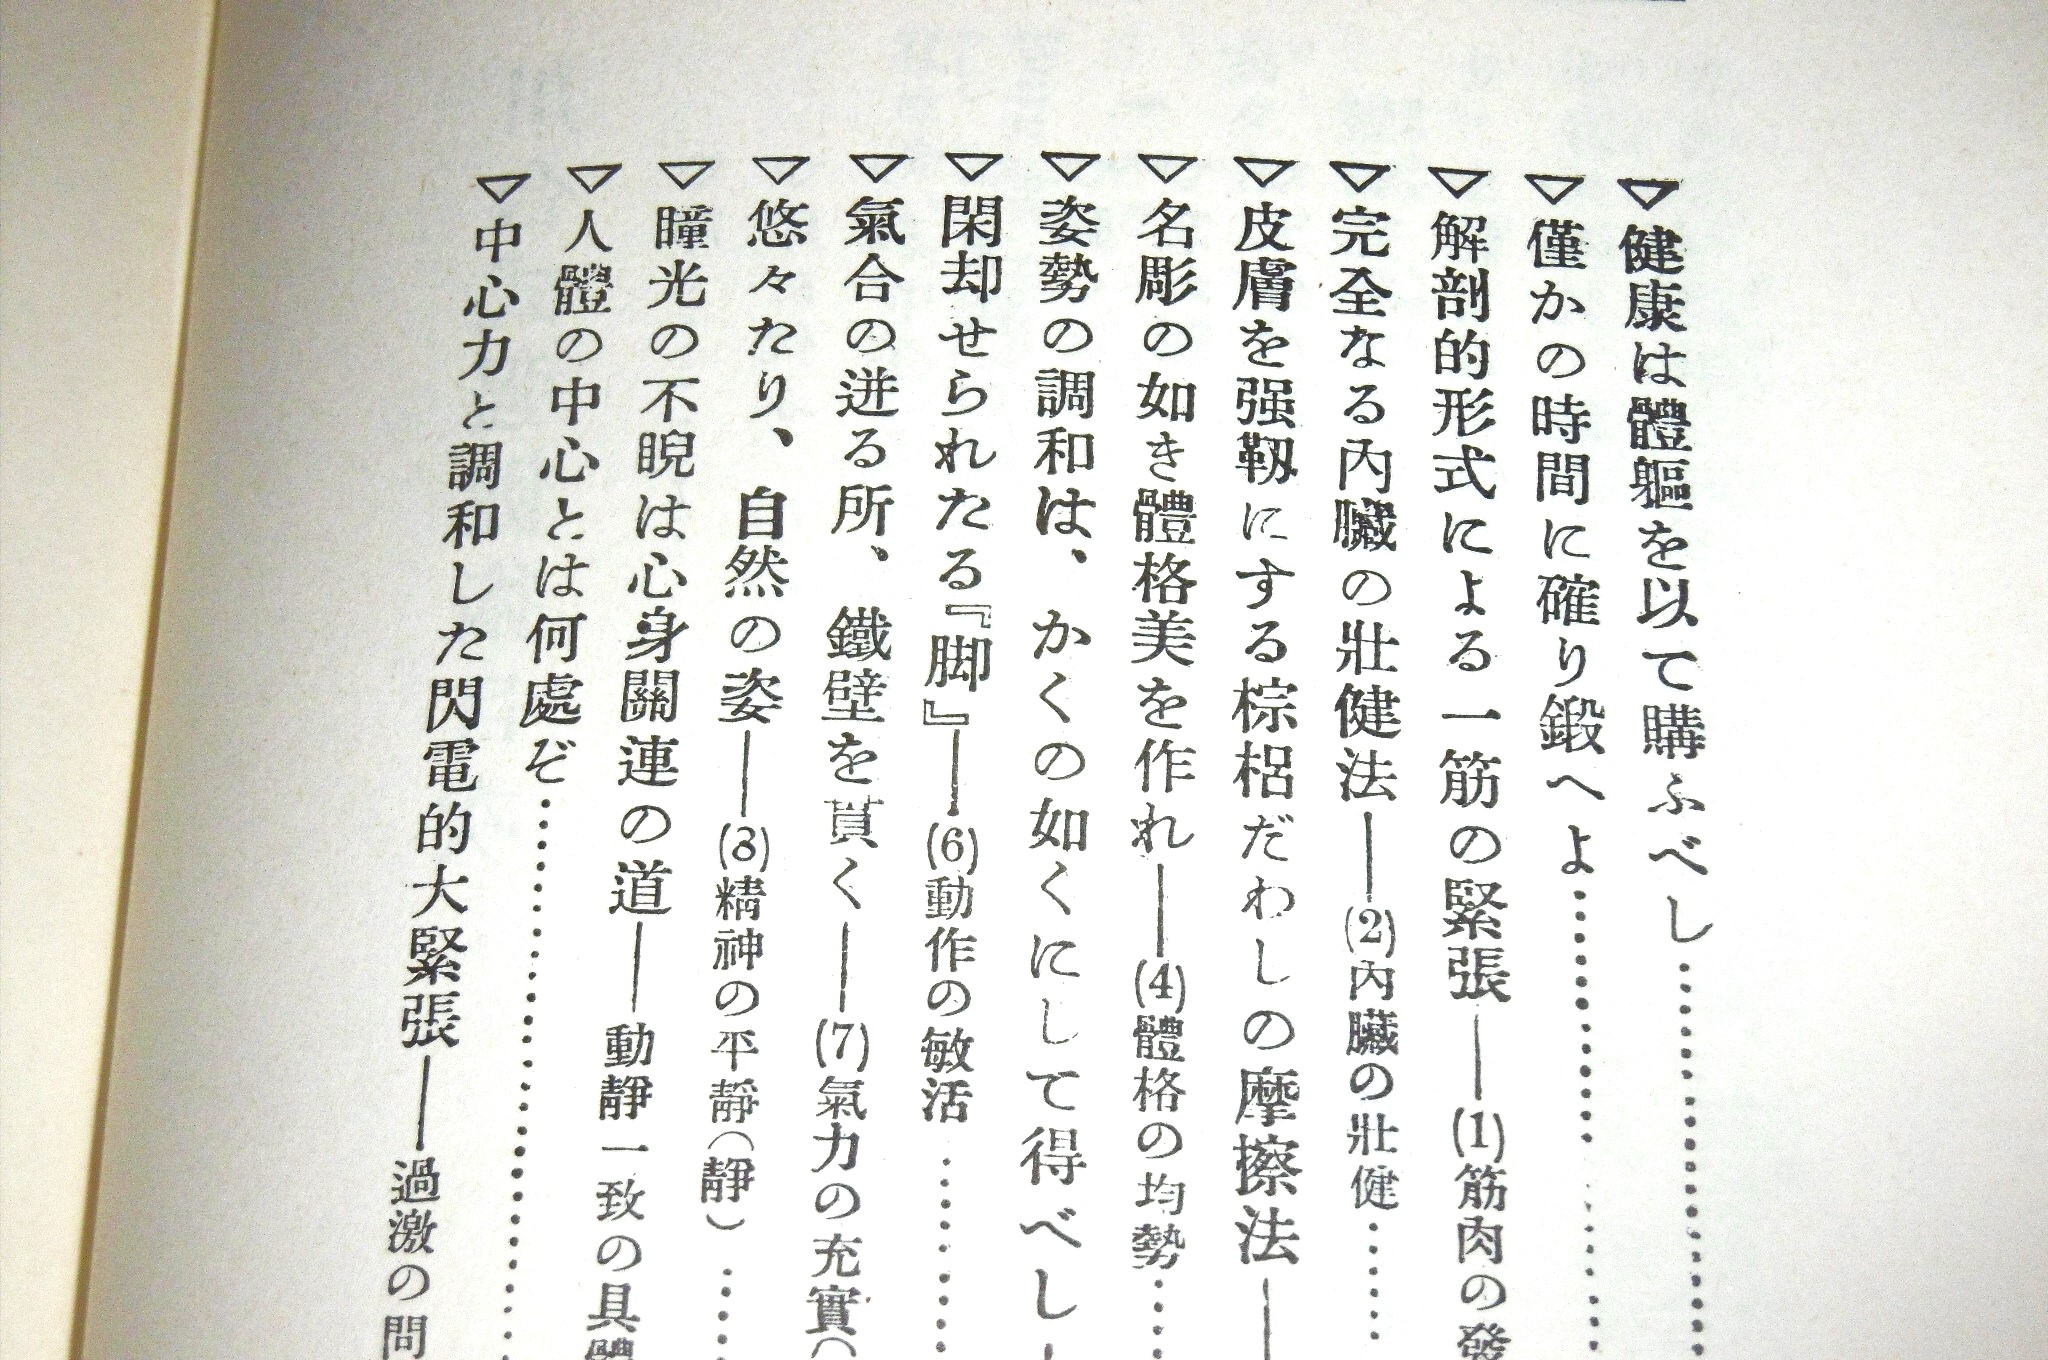 ▽健康は體軀を以て購ふべし……………
▽僅かの時間に確り鍛へよ……………
▽解剖的形式による一筋の緊張――(1)筋肉の發
▽完全なる內臟の壯健法――(2)內臟の壯健……
▽皮膚を强靱にする棕梠だわしの摩擦法――
▽名彫の如き體格美を作れ――(4)體格の均勢……
▽姿勢の調和は、かくの如くにして得べし―
▽閑却せられたる『脚』――(6)動作の敏活……
▽氣合の迸る所、鐵壁を貫く――(7)氣力の充實(
▽悠々たり、自然の姿――(8)精神の平靜(靜)……
▽瞳光の不睨は心身關連の道――動靜一致の具體
▽人體の中心とは何處ぞ……………
▽中心力と調和した閃電的大緊張――過激の問